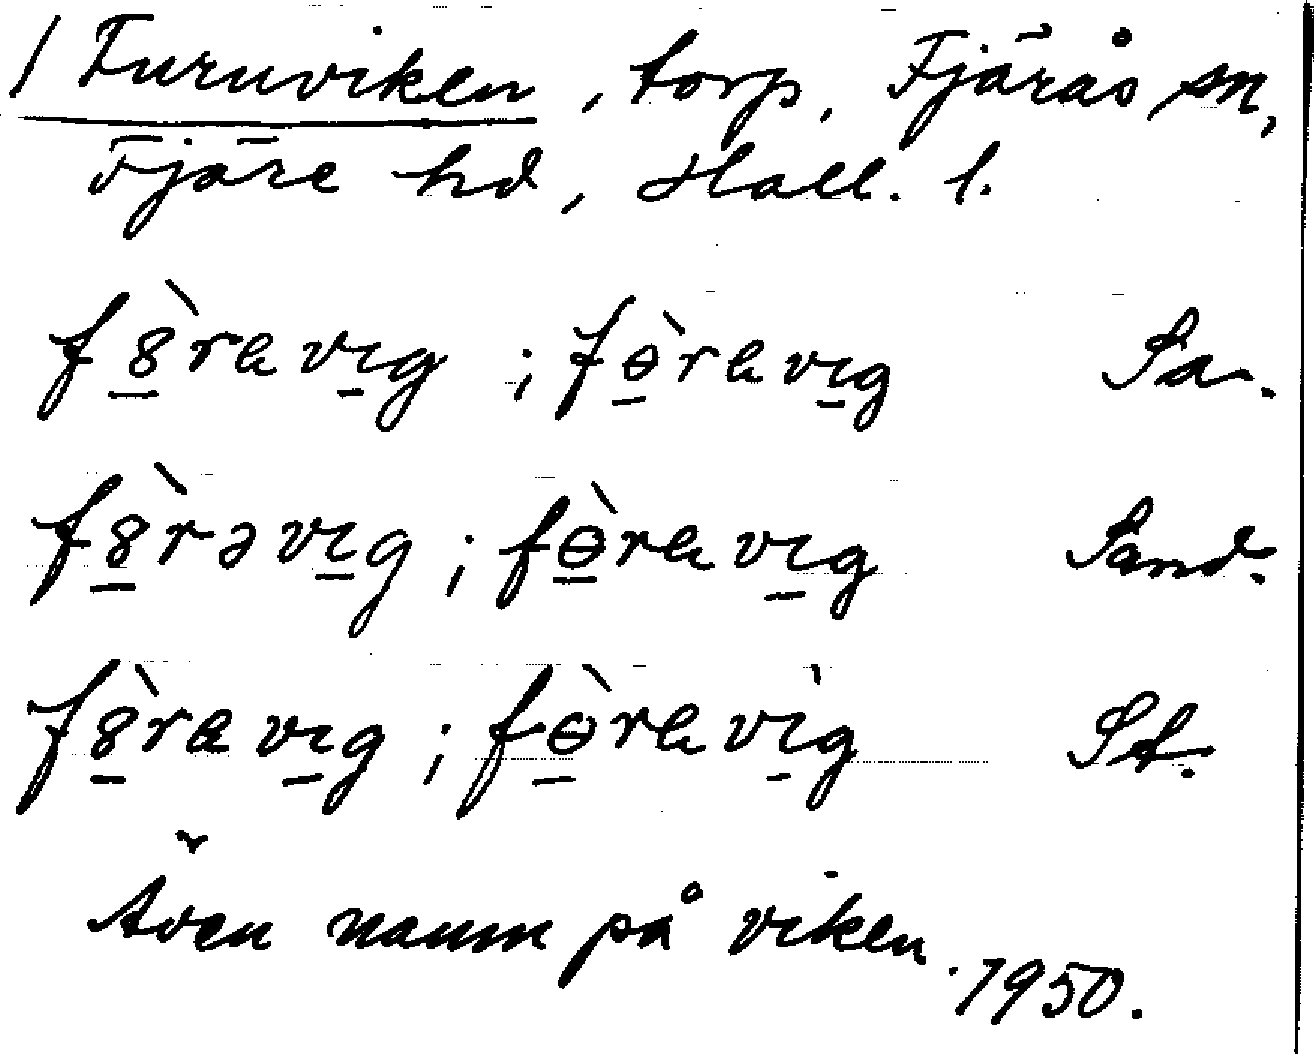 / Furuviken, torp, Fjärås sn,
Fjäre hd, Hall. l.
f8̲̀ravı̲g ; fɵ̲̀ravı̲g Sa.
f8̲̀rəvı̲g ; fɵ̲̀ravı̲g Sand.
f8̲̀ravı̲g ; fɵ̲̀ravı̲̀g St.
Även namn på viken. 1950.